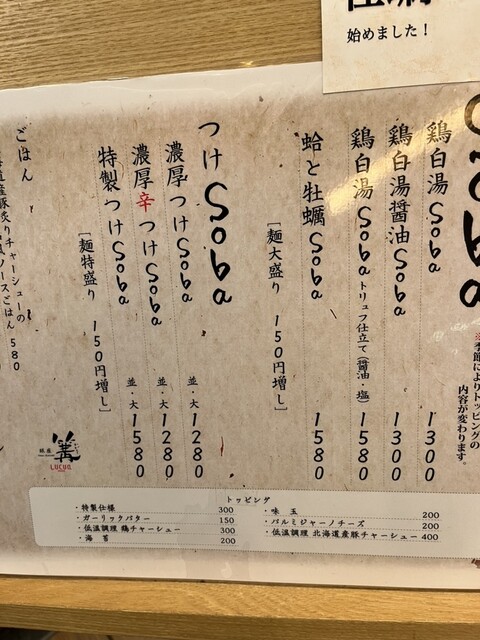 始めました！
Soba
※季節によりトッピングの
内容が変わります。
鶏白湯Soba 1300
鶏白湯醤油Soba 1300
鶏白湯Sobaトリュフ仕立て(醤油・塩) 1580
蛤と牡蠣Soba 1580
[麺大盛り 150円増し]
つけSoba
濃厚つけSoba 並・大 1280
濃厚辛つけSoba 並・大 1280
特製つけSoba 並・大 1580
[麺特盛り 150円増し]
ごはん
道産豚炙りチャーシューの
ソースごはん 580
銀座
篝
LUCUA
トッピング
・特製仕様 300
・ガーリックバター 150
・低温調理 鶏チャーシュー 300
・海苔 200
・味玉 200
・パルミジャーノチーズ 200
・低温調理 北海道産豚チャーシュー 400